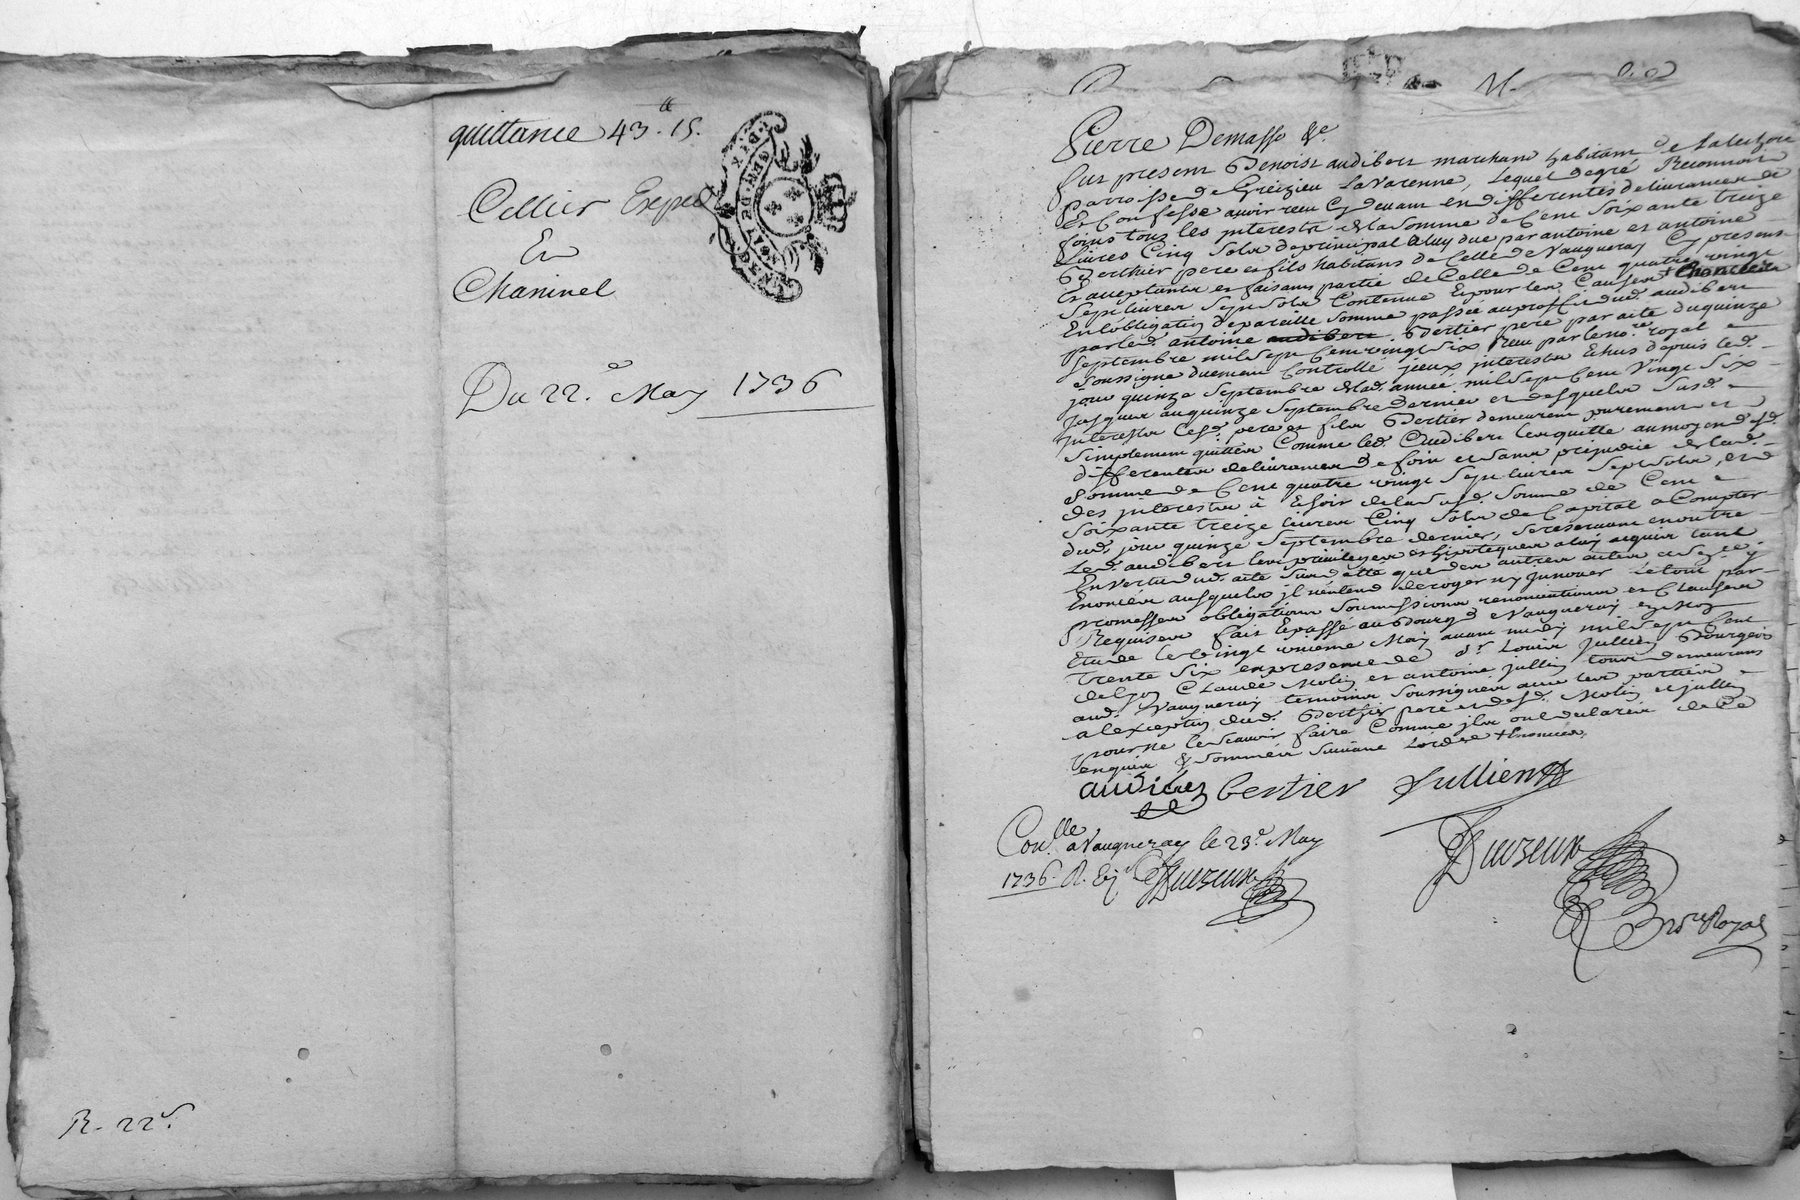 quittance 43.tt 15.s
Cellier Exped.
Et
Chaninel
Du 22.e May 1736
R. 22.s
Pierre Demasso &c.
fut present Benoist audibert marchand habitant de
parroisse de Greizieu Lavarenne, Lequel degré Reconnoit
Et Confesse avoir receu Cy devant en differentes delivrances de
foins tous les interests de la somme de Cent Soixante treize
Livres Cinq Sols de principal a luy due par antoine et antoine
Berthier pere et fils habitans de Celle de Vaugneray Cy presens
Et acceptants et faisant partie de Celle de Cent quatre vingt
Sept livres Sept Sols Contenue Et pour les Causes
En lobligation de pareille Somme passée au proffit dud. audibert
par led. antoine audibert Bertier pere par acte du quinze
Septembre mil Sept Cent vingt Six Receu par le no.re royal
Soussigné duement Controllé, yceux interests Echus depuis led.
jour quinze Septembre de lad. année mil Sept Cent Vingt Six
Jusques au quinze Septembre dernier et desquels Susd.
interests lesd. pere et fils Bertier demeurent purement et
Simplement quittes Comme led. audibert les quitte au moyen desd.
differentes delivrances de foin et sans prejudice de lad.
Somme de Cent quatre vingt Sept livres Sept Sols, et
des interests à Echoir de la susd. Somme de Cent
Soixante treize livres Cinq Sols de Capital a Compter
dud. jour quinze Septembre dernier, se reservant en outre
Led. audibert les privileges et hipoteques a luy acquis tant
En vertu dud. acte Susdatté que des autres actes
Enoncés ausquels jl n'entend deroger ny Jnnover Le tout par
promesses obligations Soumissions renonciations et Clauses
Requises fait Et passé au Bourg de Vaugneray
Etude le vingt unieme May avant midy mil Sept Cent
trente Six en presence de S.r Louis Jullien Bourgeois
de Lyon Claude Molin et antoine jullien tous demeurans
aud. Vaugneray temoins Soussignés avec les parties
a lexception dud. Berthier pere et desd. Molin et jullien
pour ne le Scavoir faire Comme jls ont declaré de Ce
enquis & Sommés Suivant Lordce + Enoncées
audiber bertier Jullien
Con.lle a Vaugneray le 23.e May
1736. R.
no.re Royal